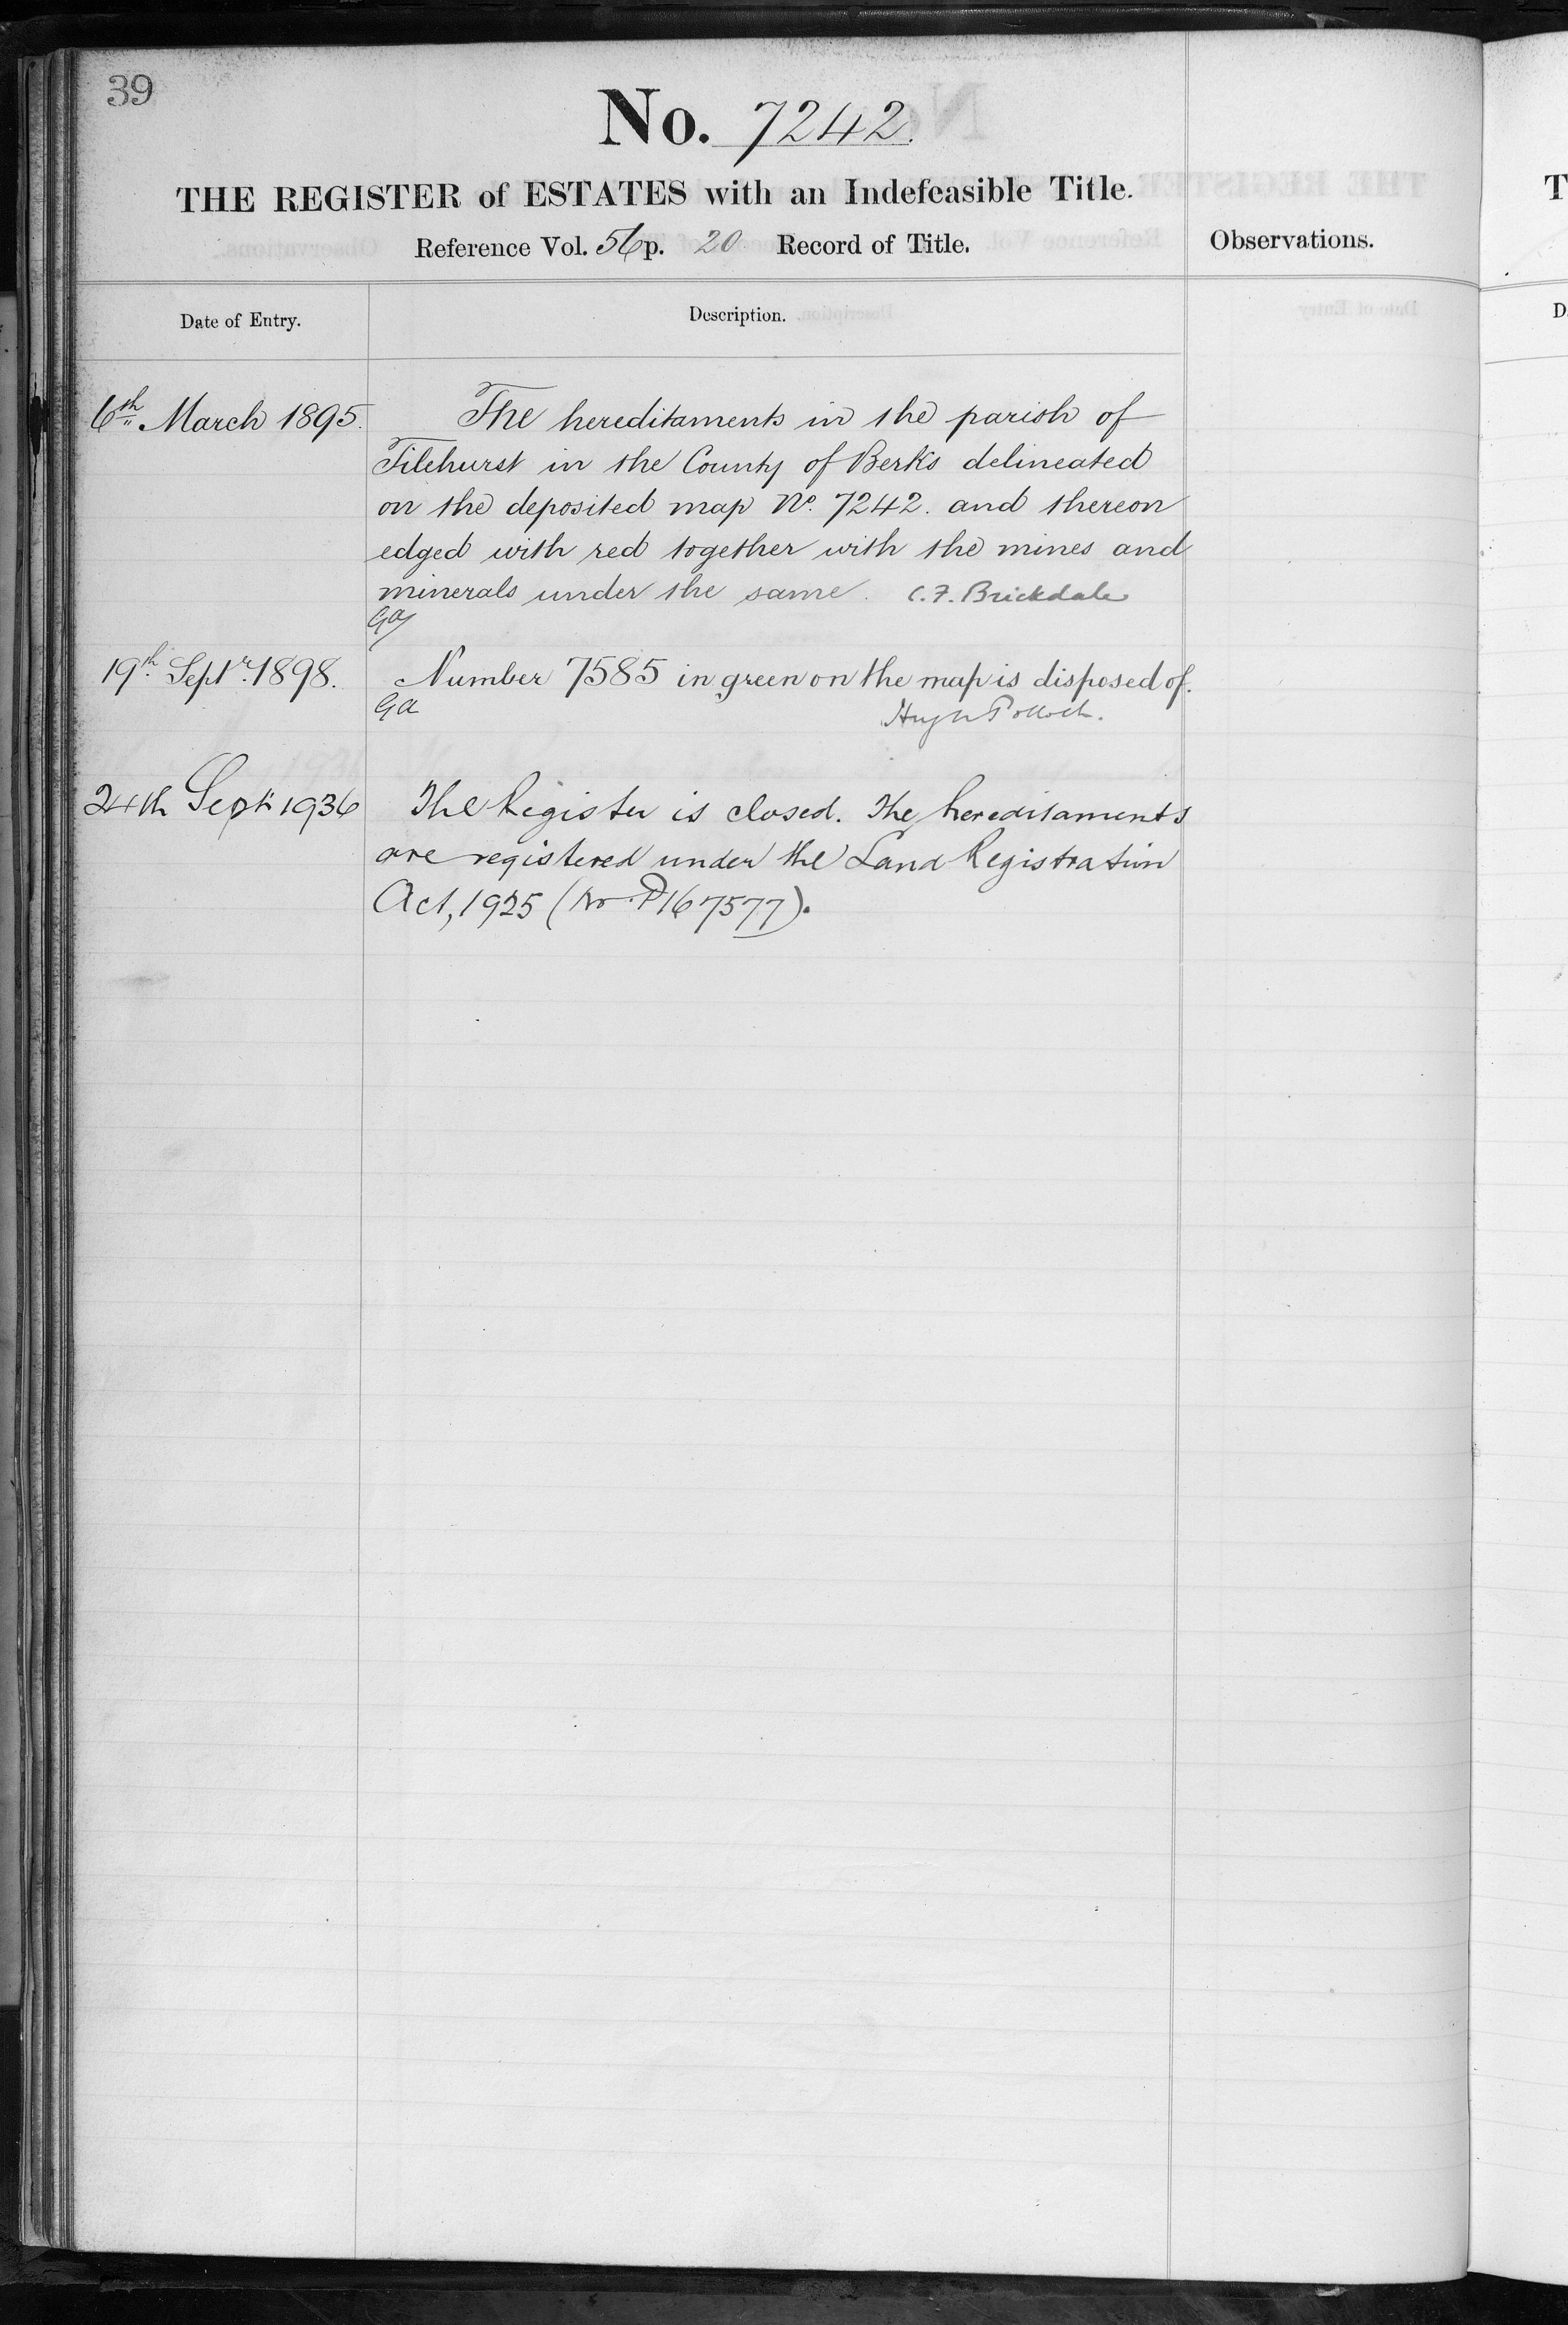 39
No. 7242.
THE REGISTER of ESTATES with an Indefeasible Title.
Reference Vol. 56 p. 20 Record of Title.
Observations.
Date of Entry.
Description.
6th March 1895.
The hereditaments in the parish of
Tilehurst in the County of Berks delineated
on the deposited map No. 7242. and thereon
edged with red together with the mines and
minerals under the same. C. F. Brickdale
Ga
19th Septr. 1898.
Number 7585 in green on the map is disposed of.
Ga
Hugh Pollock.
24th Sept 1936
The Register is closed. The hereditaments
are registered under the Land Registration
Act, 1925 (No. P167577).